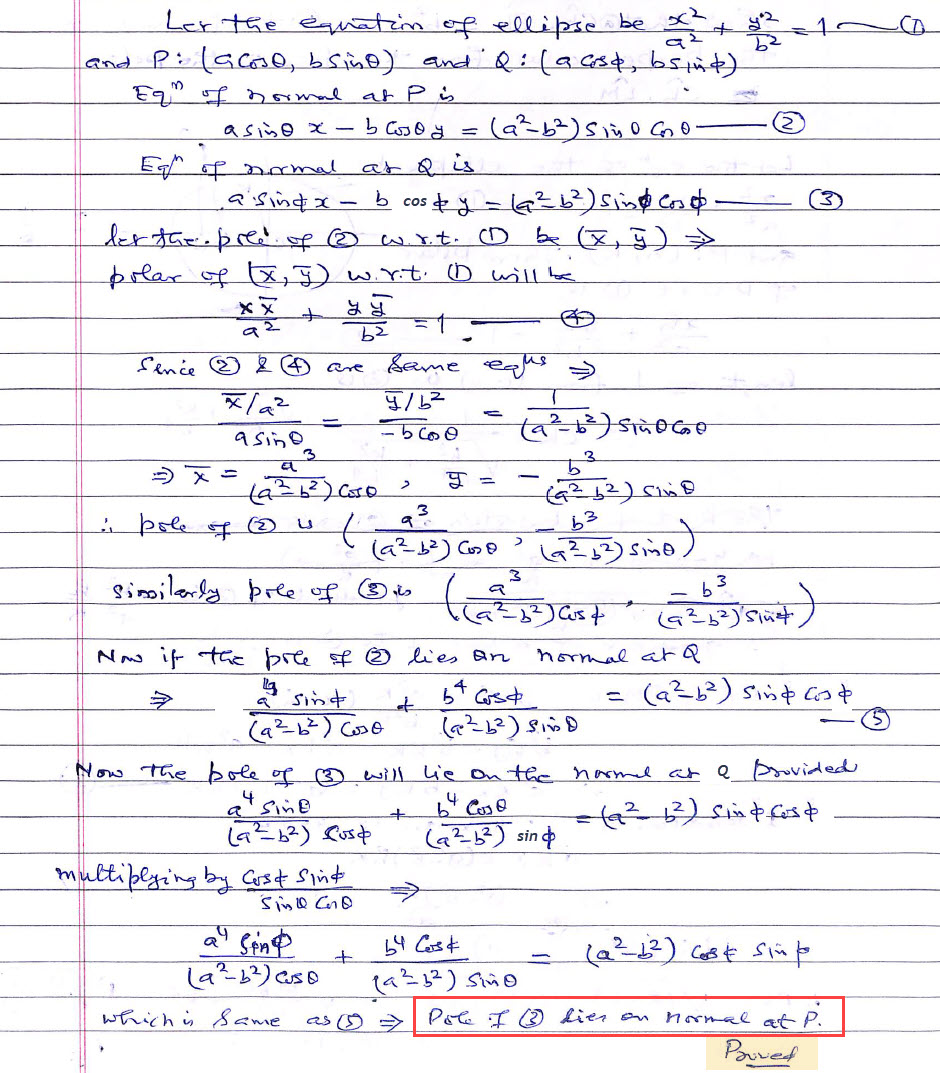 Let the equation of ellipse be x²/a² + y²/b² = 1 — (1)
and P: (a cosθ, b sinθ) and Q: (a cosϕ, b sinϕ)
Eqⁿ of normal at P is
a sinθ x − b cosθ y = (a²−b²) sinθ cosθ — (2)
Eqⁿ of normal at Q is
a sinϕ x − b cos ϕ y = (a²−b²) sinϕ cosϕ — (3)
let the pole of (2) w.r.t. (1) be (x̄, ȳ) ⇒
polar of (x̄, ȳ) w.r.t. (1) will be
x x̄/a² + y ȳ/b² = 1 — (4)
Since (2) & (4) are same eqns ⇒
(x̄/a²)/(a sinθ) = (ȳ/b²)/(−b cosθ) = 1/((a²−b²) sinθ cosθ)
⇒ x̄ = a³/((a²−b²) cosθ) , ȳ = − b³/((a²−b²) sinθ)
∴ pole of (2) is (a³/((a²−b²) cosθ) , − b³/((a²−b²) sinθ))
Similarly pole of (3) is (a³/((a²−b²) cosϕ) , −b³/((a²−b²) sinϕ))
Now if the pole of (2) lies on normal at Q
⇒ a⁴ sinϕ/((a²−b²) cosθ) + b⁴ cosϕ/((a²−b²) sinθ) = (a²−b²) sinϕ cosϕ — (5)
Now the pole of (3) will lie on the normal at Q provided
a⁴ sinθ/((a²−b²) cosϕ) + b⁴ cosθ/((a²−b²) sin ϕ) = (a²−b²) sinϕ cosϕ
multiplying by cosϕ sinϕ/(sinθ cosθ) ⇒
a⁴ sinϕ/((a²−b²) cosθ) + b⁴ cosϕ/((a²−b²) sinθ) = (a²−b²) cosϕ sinϕ
which is same as (5) ⇒ Pole of (3) lies on normal at P.
Proved